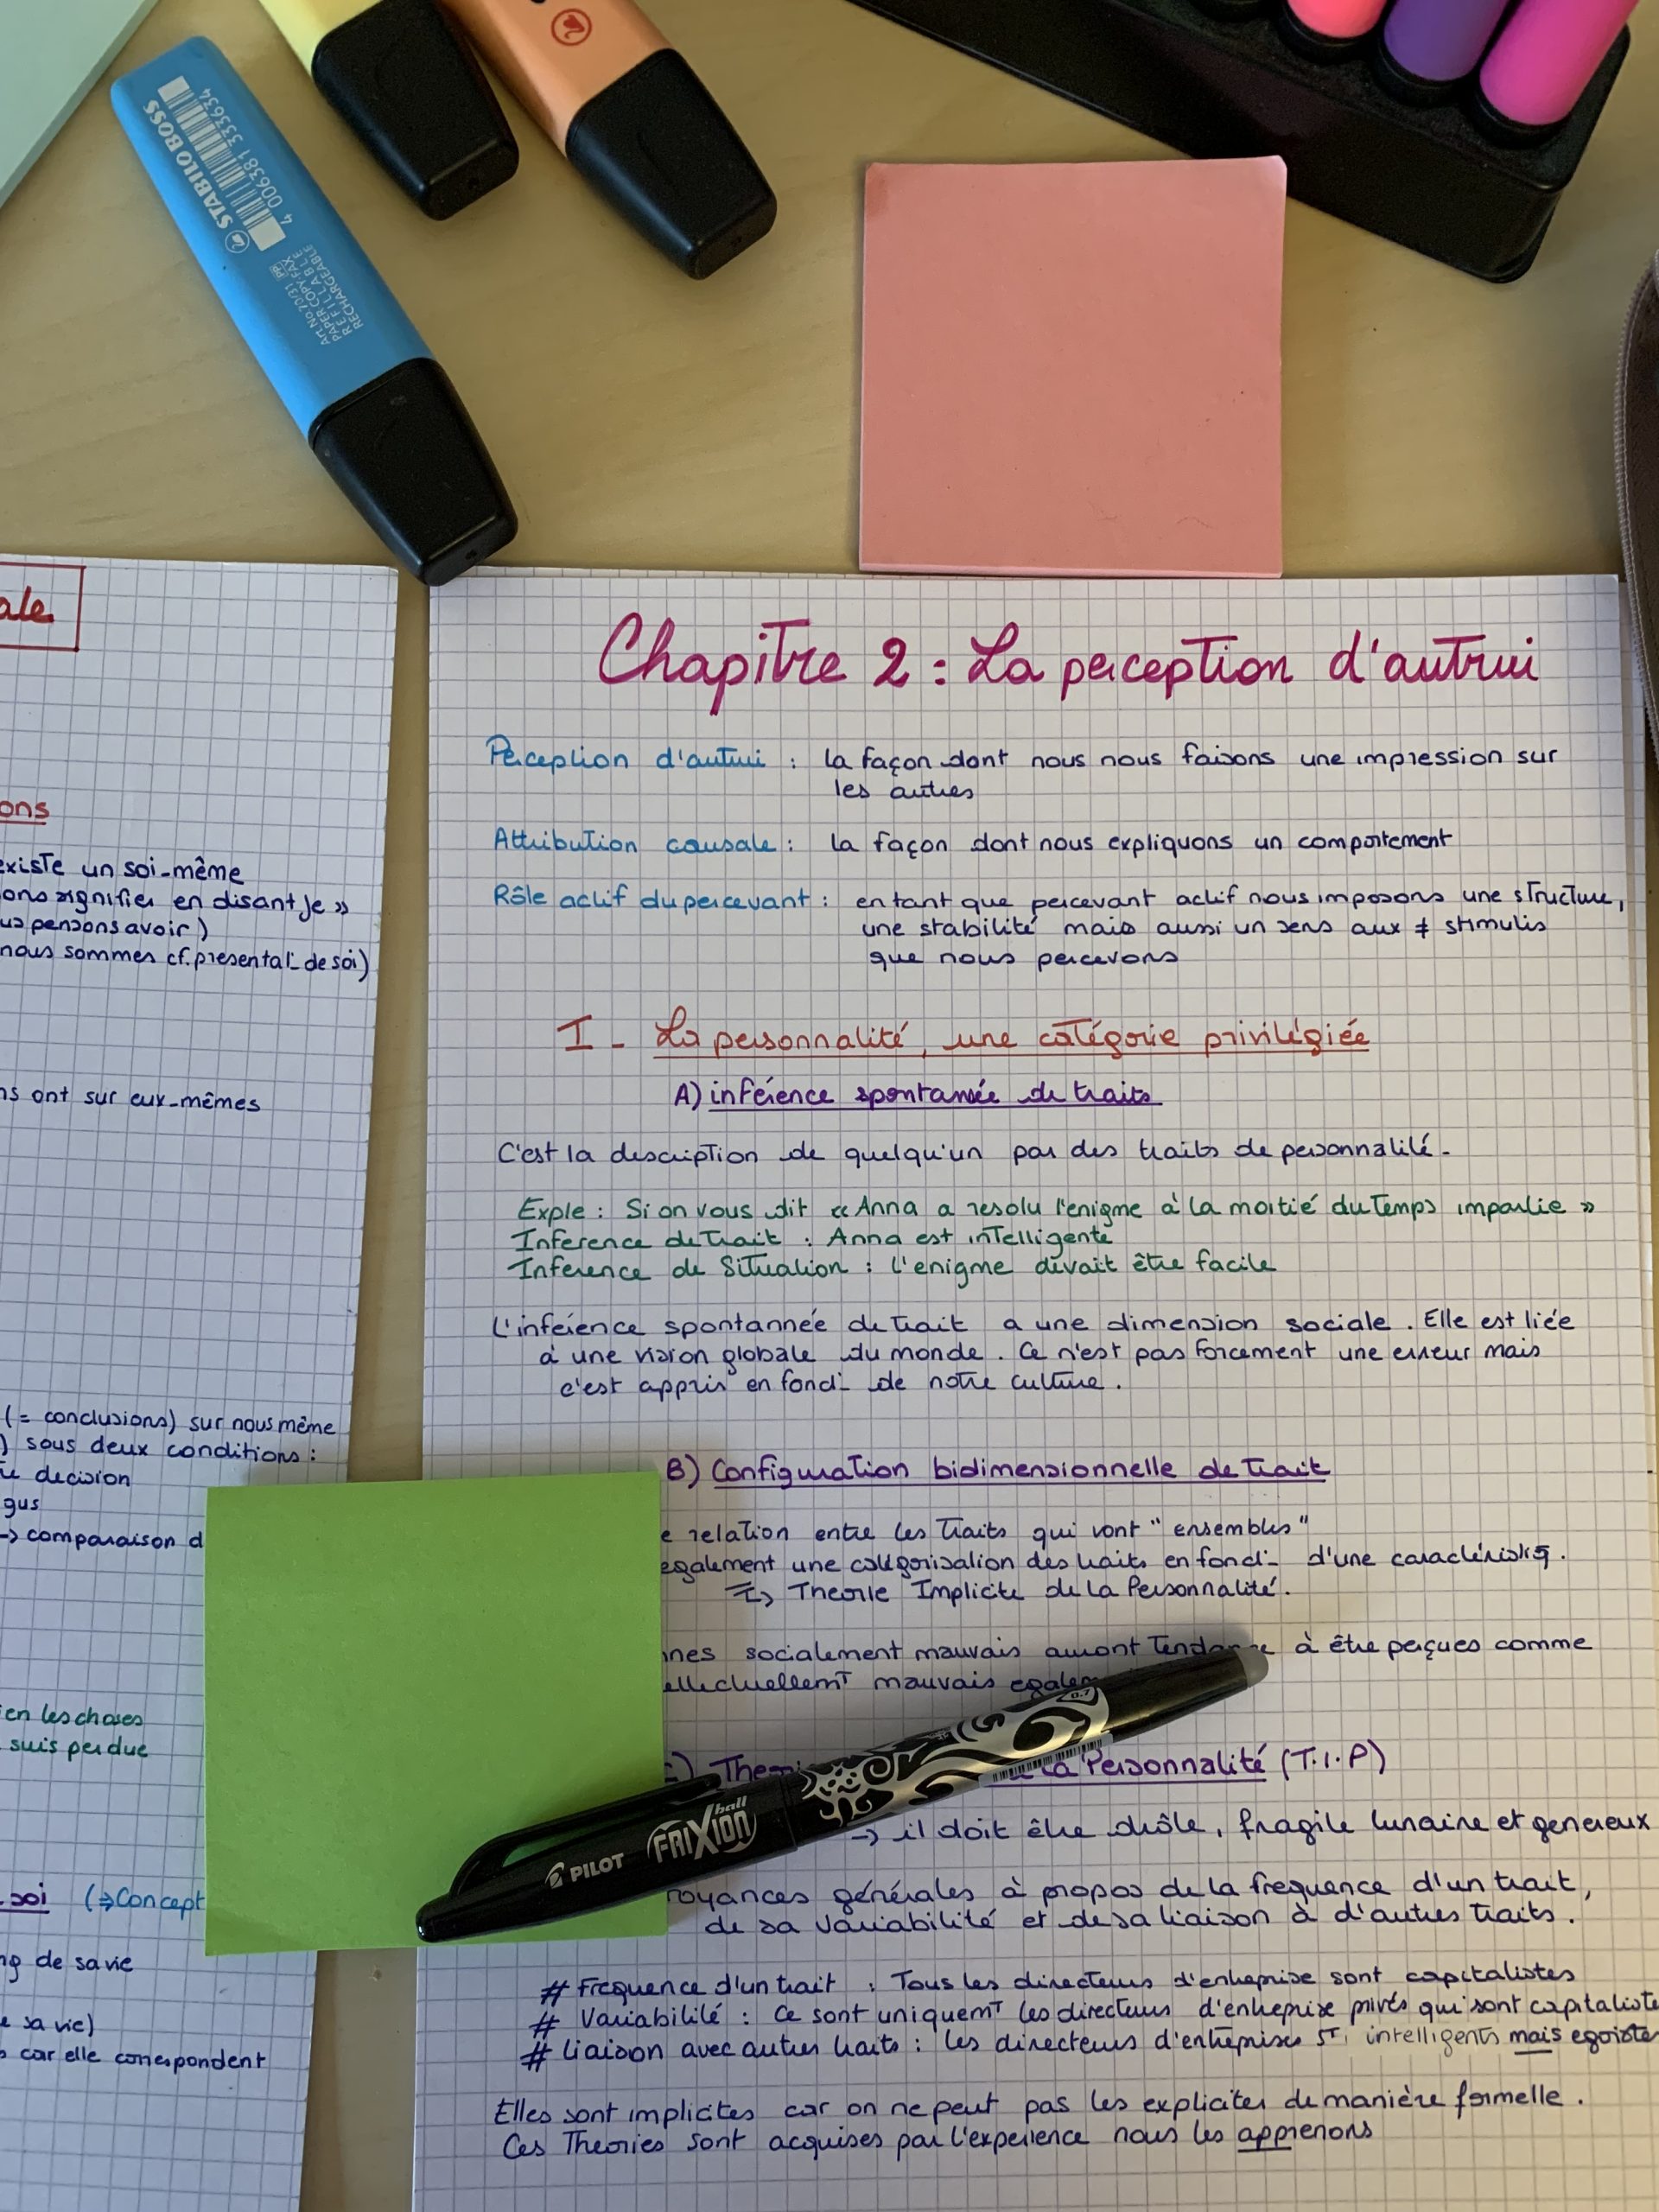 STABILO BOSS
4 006381 333634
Art. No 70/31
PAPER COPY FAX
REFILLABLE
RECHARGEABLE
ale
ons
existe un soi-même
ons signifier en disant Je »
us pensons avoir)
nous sommes cf. presentat° de soi)
ns ont sur eux-mêmes
(= conclusions) sur nous même
) sous deux conditions :
decision
gus
-> comparaison d
en les choses
suis perdue
soi (⇒Concept
ng de sa vie
e sa vie)
s car elle correspondent
Chapitre 2 : La perception d'autrui
Perception d'autrui : la façon dont nous nous faisons une impression sur
les autres
Attribution causale : la façon dont nous expliquons un comportement
Rôle actif du percevant : en tant que percevant actif nous imposons une structure,
une stabilité mais aussi un sens aux ≠ stimulis
que nous percevons
I - La personnalité, une catégorie privilégiée
A) inférence spontanée de traits
C'est la description de quelqu'un par des traits de personnalité.
Exple : Si on vous dit « Anna a resolu l'enigme à la moitié du temps impartie »
Inference de trait : Anna est intelligente
Inference de Situation : l'enigme devait être facile
L'inférence spontannée de trait a une dimension sociale. Elle est liée
à une vision globale du monde. Ce n'est pas forcement une erreur mais
c'est appris en fonct° de notre culture.
B) Configuration bidimensionnelle de trait
e relation entre les traits qui vont "ensembles"
egalement une catégorisation des traits en fonct° d'une caractéristiq.
↳ Theorie Implicite de la Personnalité.
nnes socialement mauvais auront tendance à être perçues comme
ellectuellemt mauvais egalem
C) Theori la Personnalité (T.I.P)
PILOT FRIXION ball 0.7
-> il doit être drôle, fragile lunaire et genereux
royances générales à propos de la frequence d'un trait,
de sa variabilité et de sa liaison à d'autres traits.
# Frequence d'un trait : Tous les directeurs d'entreprise sont capitalistes
# Variabilité : Ce sont uniquemt les directeurs d'entreprise privés qui sont capitaliste
# Liaison avec autres traits : les directeurs d'entreprises st intelligents mais egoiste
Elles sont implicites car on ne peut pas les expliciter de manière formelle.
Ces Theories sont acquises par l'experience nous les apprenons